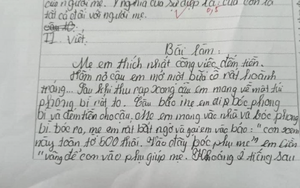 của người mẹ. Ý nghĩa của sự
tất cả đối với người mẹ.
II. Viết.
Bài làm:
Mẹ em thích nhất công việc đếm tiền.
Hôm nọ cậu em mở một bữa cỗ rất hoành
tráng... Sau khi thu rạp xong cậu em mang về một túi
phong bì rất to. Cậu bảo mẹ em đi bóc phong
bì và đếm tiền cho cậu. Mẹ em mang vào nhà và bóc phong
bì. bóc ra, mẹ em rất bất ngờ và gọi em vào bảo: "con xem
này toàn tờ 500 thôi. Vào đây bóc phụ mẹ" em liền
"vâng để con vào phụ giúp mẹ. Khoảng 2 tiếng sau